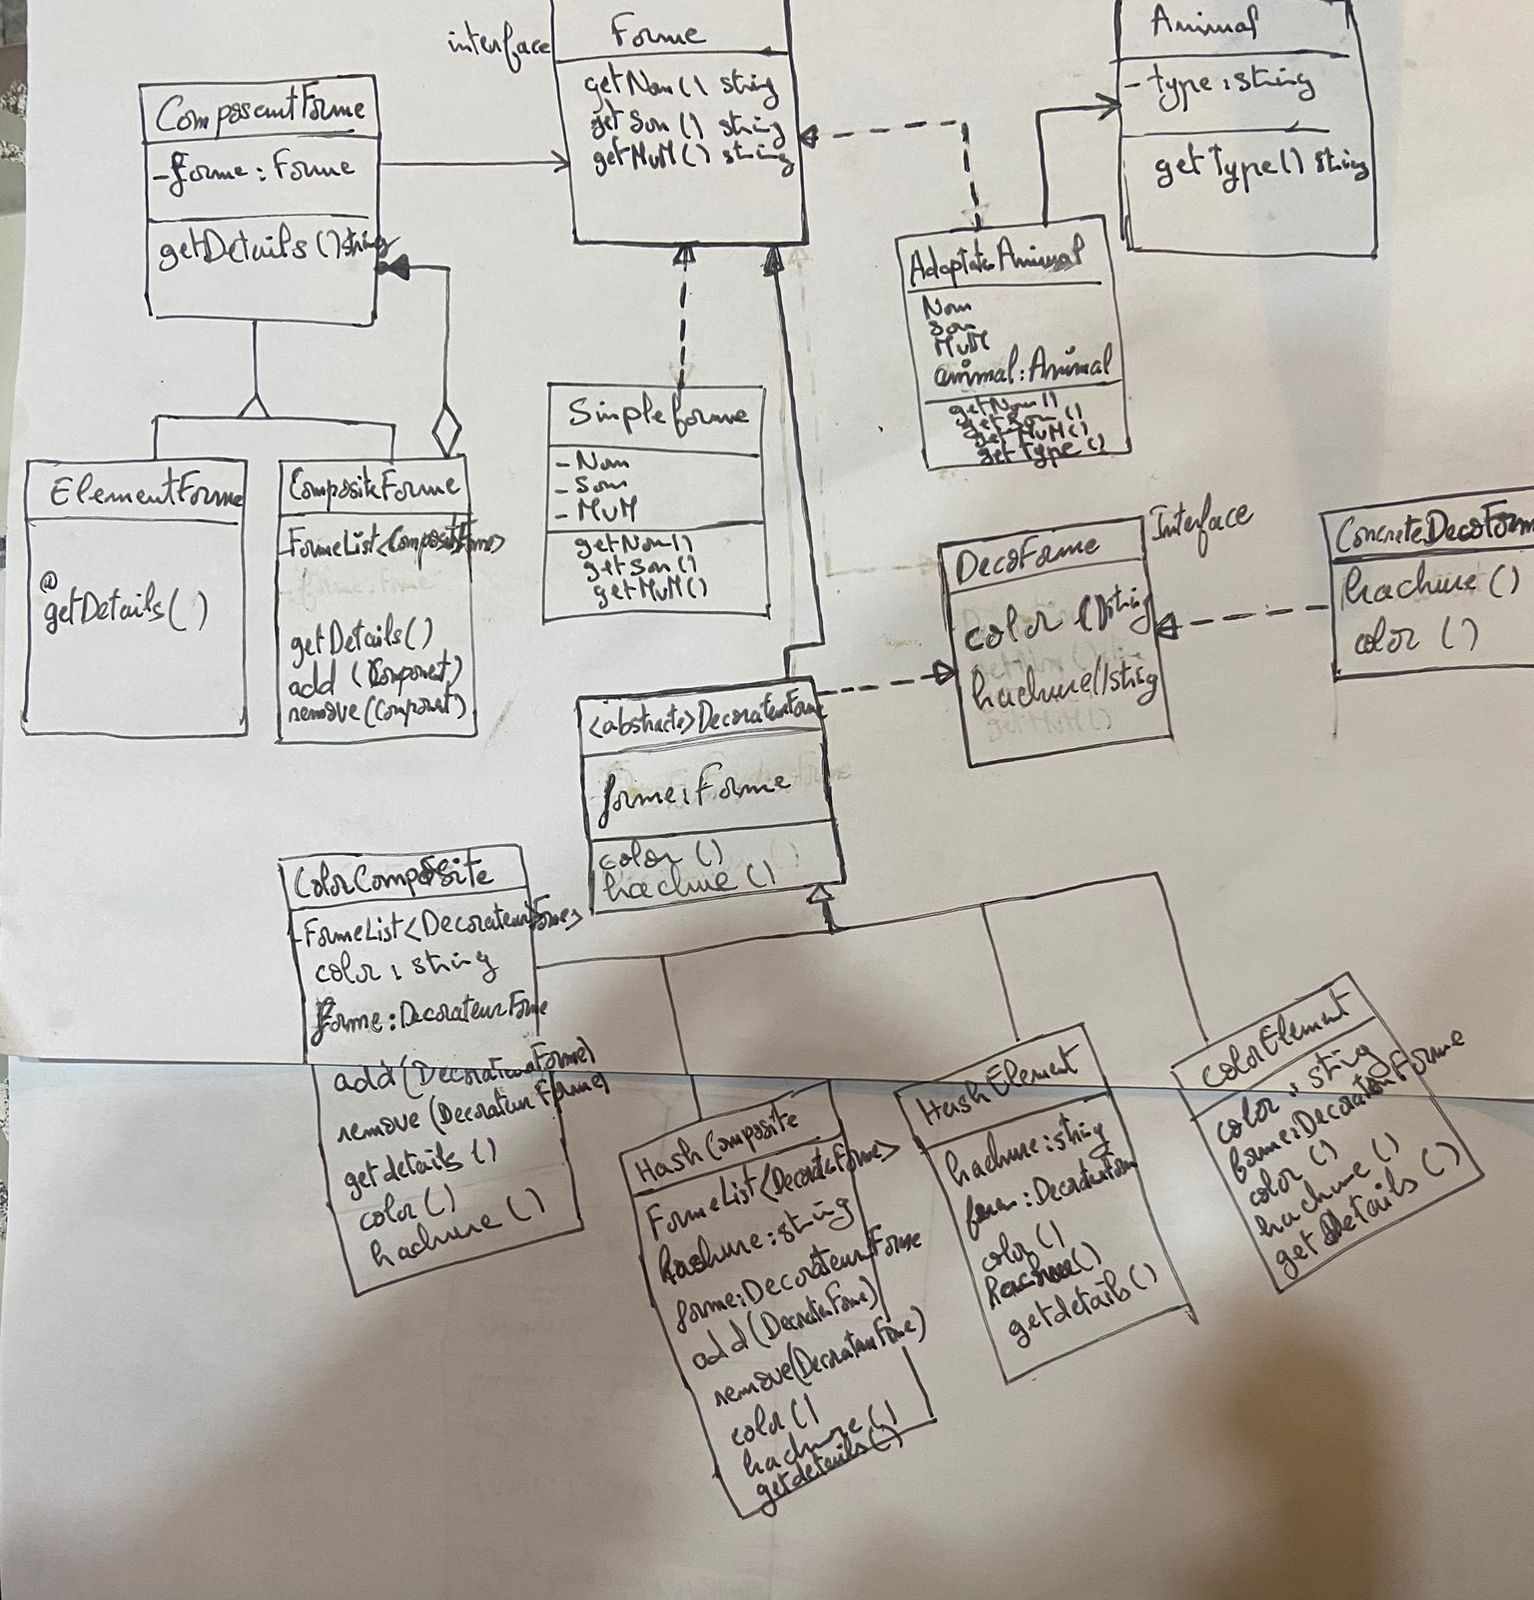 interface
Forme
getNom() string
getSon() string
getMvM() string
Animal
- type : string
getType() string
ComposantForme
- forme : Forme
getDetails() string
AdaptateAnimal
Nom
Son
MvM
animal : Animal
getNom()
getSon()
getMvM()
getType()
Simpleforme
- Nom
- Son
- MvM
getNom()
getSon()
getMvM()
ElementForme
@
getDetails()
CompositeForme
FormeList<CompositForme>
getDetails()
add (Component)
remove (Component)
Interface
DecoForme
color () string
hachure() string
ConcreteDecoForm
hachure ()
color ()
<abstracte> DecorateurForme
forme : Forme
color ()
hachure ()
ColorComposite
- FormeList<DecorateurForme>
color : string
forme : DecorateurForme
add (DecorateurForme)
remove (Decorateur Forme)
getdetails ()
color ()
hachure ()
HashComposite
FormeList<DecorateForme>
hashure : string
forme : DecorateurForme
add (DecorateurForme)
remove (DecorateurForme)
color ()
hachure ()
getdetails ()
HashElement
hachure : string
color ()
hachure ()
getdetails ()
colorElement
color : string
forme : DecorateurForme
color ()
hachure ()
getDetails ()